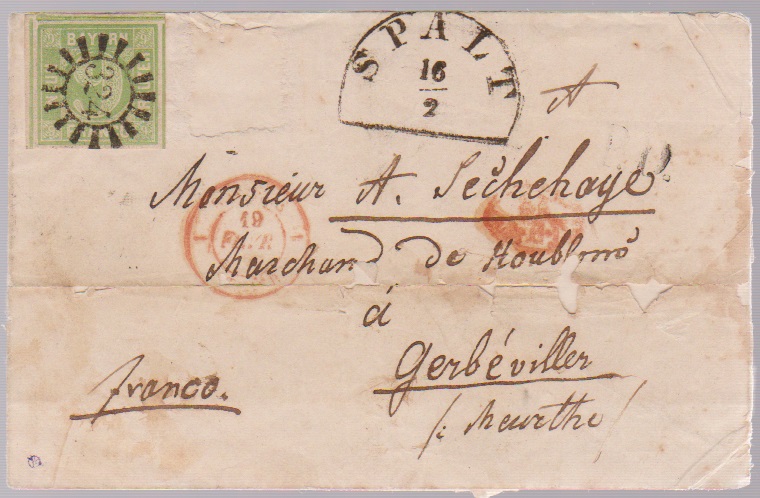 BAYERN
324
SPALT
16
2
A
Monsieur A. Sechehaye
19
FEVR.
Marchand de Houblons
á
Gerbéviller
franco.
/: Meurthe /